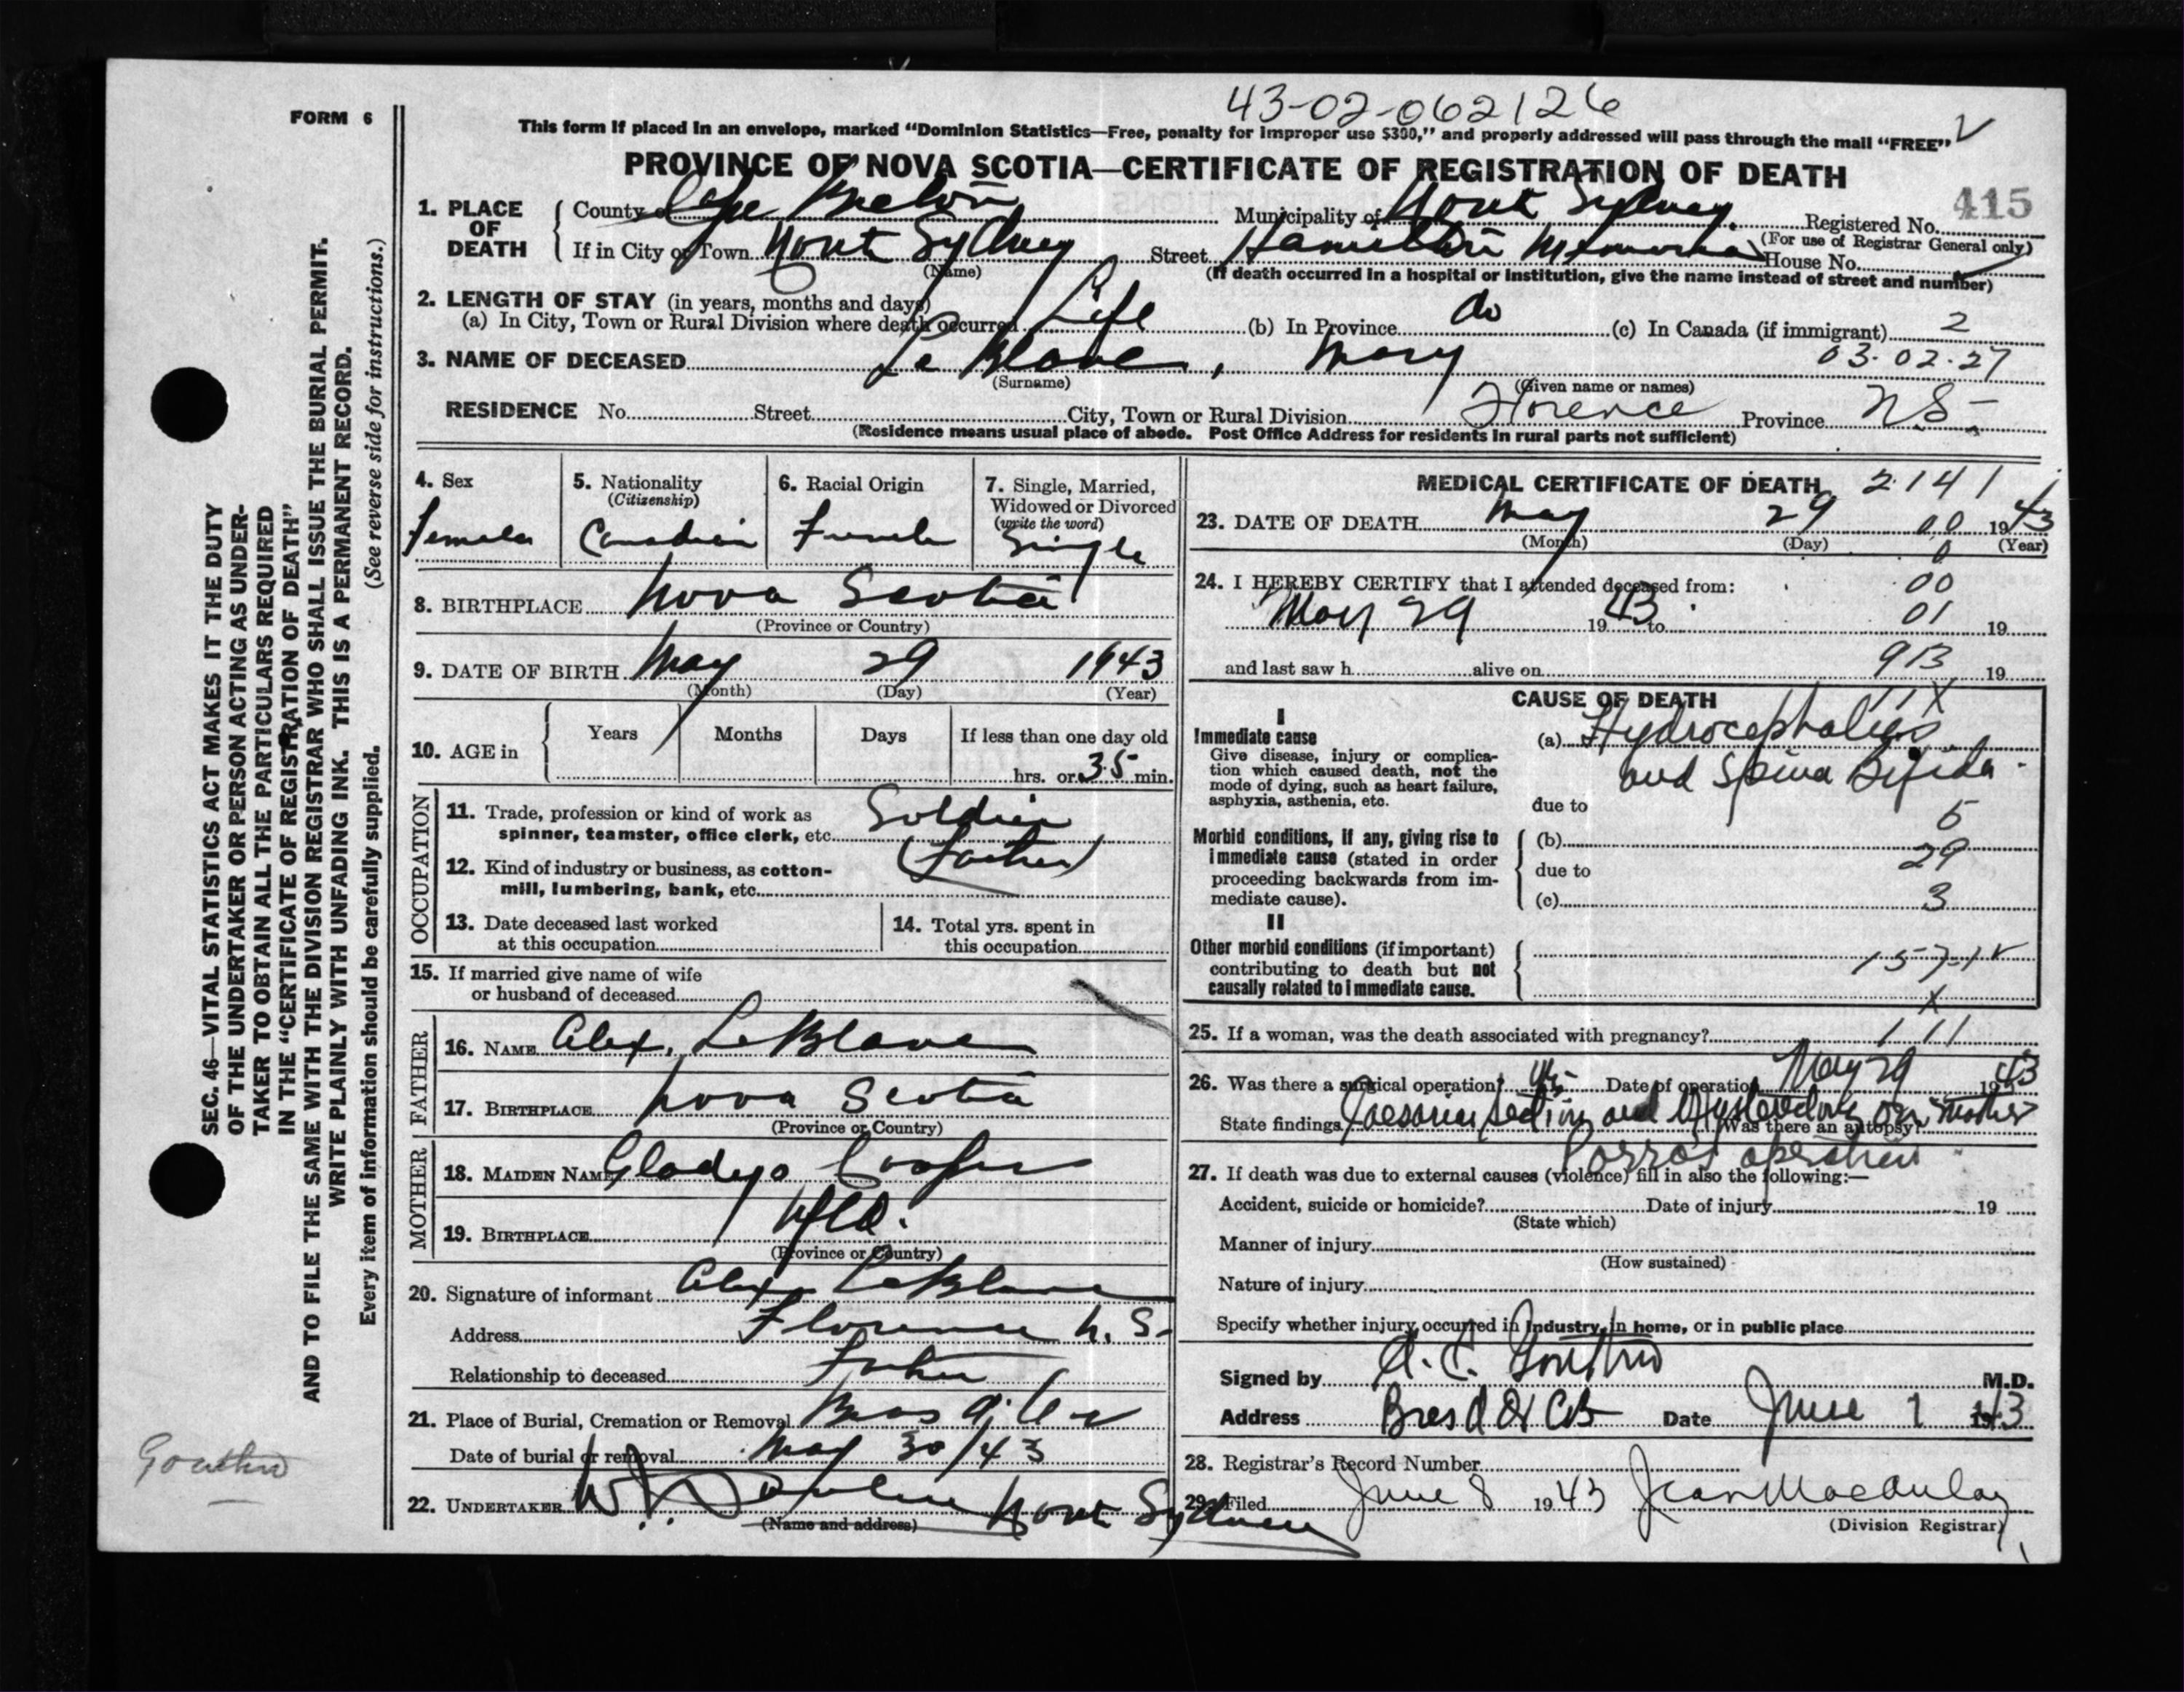 43-02-062126
FORM 6
This form if placed in an envelope, marked “Dominion Statistics—Free, penalty for improper use $300,” and properly addressed will pass through the mail “FREE”
PROVINCE OF NOVA SCOTIA—CERTIFICATE OF REGISTRATION OF DEATH
415
1. PLACE OF DEATH
County of Cape Breton Municipality of North Sydney Registered No.
(For use of Registrar General only)
If in City or Town North Sydney Street Hamilton Memorial House No.
(Name) (If death occurred in a hospital or institution, give the name instead of street and number)
2. LENGTH OF STAY (in years, months and days)
(a) In City, Town or Rural Division where death occurred Life (b) In Province do (c) In Canada (if immigrant) 2
3. NAME OF DECEASED Le Blanc, Mary 03-02-27
(Surname) (Given name or names)
RESIDENCE No. Street City, Town or Rural Division Florence Province N.S-
(Residence means usual place of abode. Post Office Address for residents in rural parts not sufficient)
4. Sex
Female
5. Nationality
(Citizenship)
Canadian
6. Racial Origin
French
7. Single, Married,
Widowed or Divorced
(write the word)
Single
8. BIRTHPLACE Nova Scotia
(Province or Country)
9. DATE OF BIRTH May 29 1943
(Month) (Day) (Year)
10. AGE in Years Months Days If less than one day old
hrs. or 35 min.
OCCUPATION
11. Trade, profession or kind of work as
spinner, teamster, office clerk, etc. Soldier
(Father)
12. Kind of industry or business, as cotton-
mill, lumbering, bank, etc.
13. Date deceased last worked
at this occupation
14. Total yrs. spent in
this occupation
15. If married give name of wife
or husband of deceased
FATHER
16. NAME Alex. LeBlanc
17. BIRTHPLACE Nova Scotia
(Province or Country)
MOTHER
18. MAIDEN NAME Gladys Cooper
19. BIRTHPLACE Nfld.
(Province or Country)
20. Signature of informant Alex LeBlanc
Address Florence N. S-
Relationship to deceased Father
21. Place of Burial, Cremation or Removal
Date of burial or removal May 30/43
22. UNDERTAKER North Sydney
(Name and address)
MEDICAL CERTIFICATE OF DEATH 2141
23. DATE OF DEATH May 29 00 1943
(Month) (Day) (Year)
0
24. I HEREBY CERTIFY that I attended deceased from: 00
May 29 1943 to 01 19
and last saw h alive on 913 19
CAUSE OF DEATH 11X
I
Immediate cause
Give disease, injury or complica-
tion which caused death, not the
mode of dying, such as heart failure,
asphyxia, asthenia, etc.
(a) Hydrocephalus
and Spina Bifida
due to
5
Morbid conditions, if any, giving rise to
immediate cause (stated in order
proceeding backwards from im-
mediate cause).
(b) 29
due to
(c) 3
II
Other morbid conditions (if important)
contributing to death but not
causally related to immediate cause.
157-1
X
25. If a woman, was the death associated with pregnancy? 111
26. Was there a surgical operation? Yes Date of operation May 29 1943
State findings Caesarian Section and Hysterectomy on mother Was there an autopsy?
Porro's operation
27. If death was due to external causes (violence) fill in also the following:—
Accident, suicide or homicide? Date of injury 19
(State which)
Manner of injury
(How sustained)
Nature of injury
Specify whether injury occurred in industry, in home, or in public place
Signed by A. C. Gouthro M.D.
Address Date June 1 1943
28. Registrar's Record Number
29. Filed June 8 1943 Jean MacAulay
(Division Registrar)
SEC. 46—VITAL STATISTICS ACT MAKES IT THE DUTY
OF THE UNDERTAKER OR PERSON ACTING AS UNDER-
TAKER TO OBTAIN ALL THE PARTICULARS REQUIRED
IN THE “CERTIFICATE OF REGISTRATION OF DEATH”
AND TO FILE THE SAME WITH THE DIVISION REGISTRAR WHO SHALL ISSUE THE BURIAL PERMIT.
WRITE PLAINLY WITH UNFADING INK. THIS IS A PERMANENT RECORD.
Every item of information should be carefully supplied. (See reverse side for instructions.)
Gouthro